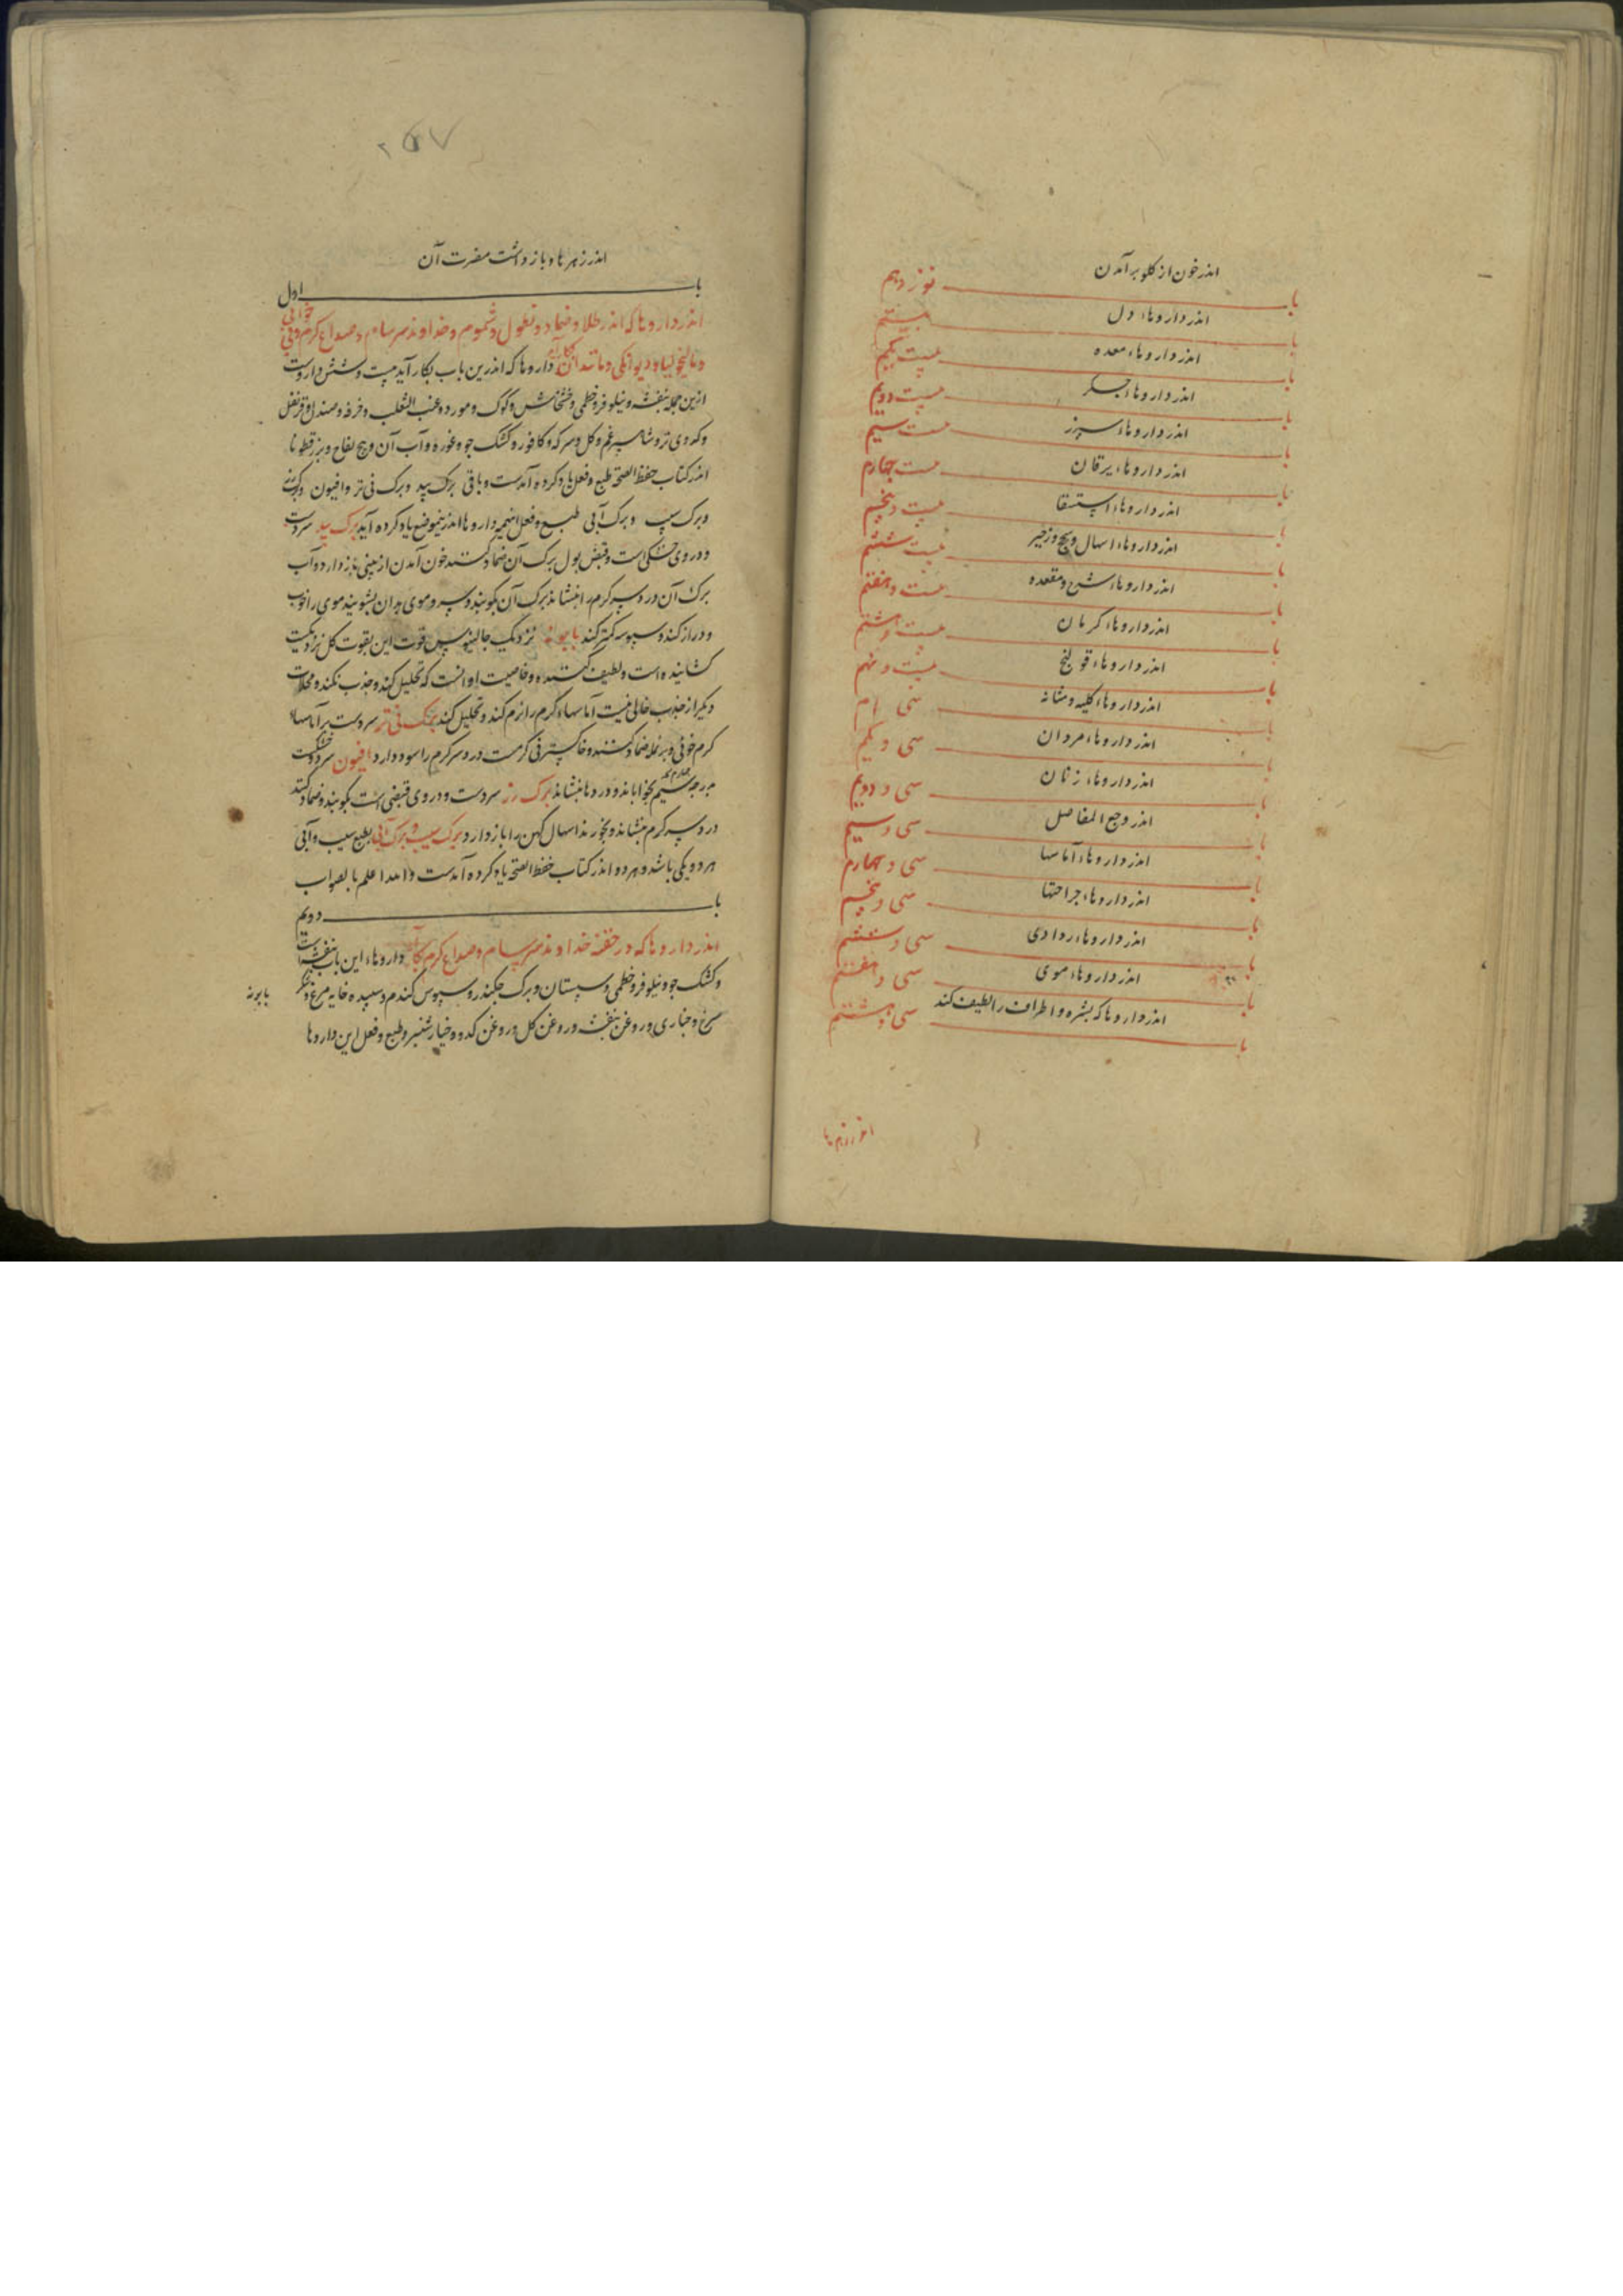 اندر خون از کلو برآمدن
باب نوزدهم
اندر داروهاء دل
باب بیستم
اندر داروهاء معده
باب بیست یکیم
اندر داروهاء جسکر
باب بیست دویم
اندر داروهاء سپرز
باب بیست سیم
اندر داروهاء یرقان
باب بیست چهارم
اندر داروهاء استسقا
باب بیست و پنجم
اندر داروهاء اسهال و سحج و زحیر
باب بیست ششم
اندر داروهاء شرج و مقعده
باب بیست و هفتم
اندر داروهاء کرمان
باب بیست و هشتم
اندر داروهاء قولنج
باب بیست و نهم
اندر داروهاء کلیه و مثانه
باب سی ام
اندر داروهاء مردان
باب سی و یکیم
اندر داروهاء زنان
باب سی و دویم
اندر وجع المفاصل
باب سی و سیم
اندر داروهاء آماسها
باب سی و چهارم
اندر داروهاء جراحتها
باب سی و پنجم
اندر داروهاء ردادی
باب سی و ششم
اندر داروهاء موی
باب سی و هفتم
اندر داروها که بشره و اطراف را لطیف کند
باب سی و هشتم
اندر زهرها
۲۵۷
اندر زهرها و بازداشت مضرت آن
باب اول
اندر داروها که اندر طلا و ضماد و نطول و شموم و خداوند سرسام و صداع کرم و بی خوابی
و مالیخولیا و دیوانکی و مانند آن بکار آید داروها که اندرین باب بکار آید بیست و شش داروست
ازین جمله بنفشه و نیلوفر و خطمی و خشخاش و کوک و مورد و عنب الثعلب و خرفه و صندل و قرنفل
و کدوی تر و شاهسپرغم و کل و سرکه و کافور و کشک جو و غوره و آب آن و بیخ لفاح و بزرقطونا
اندر کتاب حفظ الصحه طبع و فعل یاد کرده آمدست و باقی برک بید و برک نی تر و افیون و برک رز
و برک سیب و برک آبی طبع و فعل اینهمه داروها اندرین موضع یاد کرده آید برک بید سردست
و در وی خشکی است و قبض بول برک آن ضماد کنند خون آمدن از بینی باز دارد و آب
برک آن درد سر کرم را بنشاند برک آن بکوبند و سر و موی بدان بشویند موی را خوب
و دراز کند و سبوسه کمتر کند بابونه نزدیک جالینوس قوت این بقوت کل نزدیکست
کشاینده است و لطیف کننده و خاصیت او آنست که تحلیل کند و جذب نکند و محللات
دیکر از جذب خالی نیست آماسهاء کرم را نرم کند و تحلیل کند برک نی تر سردست بر آماسهاء
کرم خونی و بر نمله ضماد کنند و خاکستر نی کرمست درد سر کرم را سود دارد افیون سرد و خشکست
بدرجه سیم بخواباند و دردها بنشاند برک رز سردست و در وی قبضی است بکوبند و ضماد کنند
درد سر کرم بنشاند و بخورند اسهال کهن را باز دارد برک سیب و برک آبی طبع سیب و آبی
هر دو یکی باشد و هر دو اندر کتاب حفظ الصحه یاد کرده آمدست والله اعلم بالصواب
باب دویم
اندر داروها که در حقنه خداوند سرسام و صداع کرم بکار آید داروهاء این باب بنفشه است
و کشک جو و نیلوفر و خطمی و سپستان و برک چکندر و سبوس کندم و سپیده خایه مرغ و شکر
سرخ و خبازی و روغن بنفشه و روغن کل و روغن کدو و خیارشنبر و طبع و فعل این داروها
بابونه